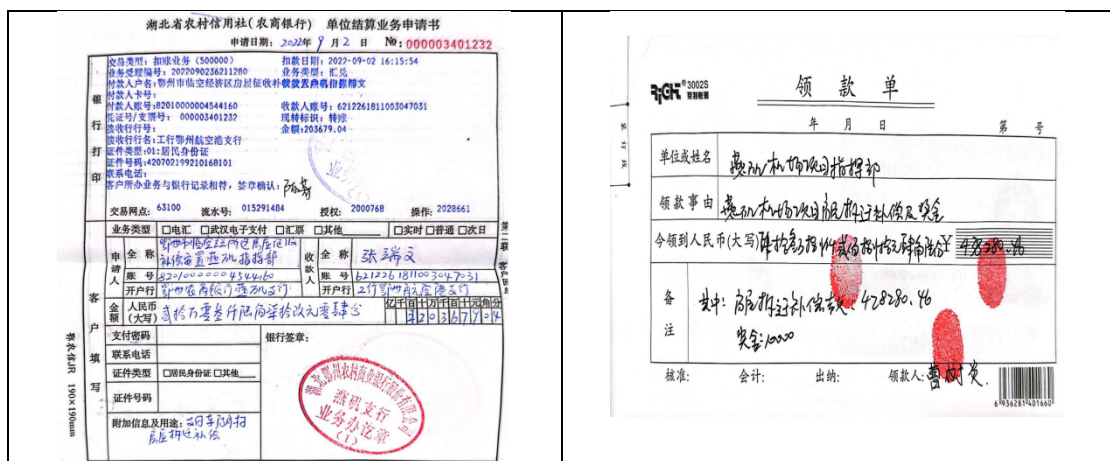 湖北省农村信用社(农商银行) 单位结算业务申请书
申请日期: 2022年9月2日 No: 000003401232
交易类型: 扣账业务 (500000) 扣款日期: 2022-09-02 16:15:54
业务受理编号: 2022090236211280 业务类型: 汇兑
付款人户名: 鄂州市临空经济区房屋征收补
付款人卡号:
付款人账号: 82010000004544160 收款人账号: 6212261811003047031
凭证号/支票号: 000003401232 现转标识: 转账
接收行行号: 金额: 203679.04
接收行行名: 工行鄂州航空港支行
证件类型: 01: 居民身份证
证件号码: 420702199210168101
联系电话:
客户所办业务与银行记录相符, 签章确认:
交易网点: 63100 流水号: 015291484 授权: 2000768 操作: 2028661
银行打印
业务类型 □电汇 □武汉电子支付 □汇票 □其他 □实时 □普通 □次日
申请人 全称
补偿安置燕矶指挥部
收款人 全称 张瑞文
账号 82010000004544160 账号 6212261811003047031
开户行 鄂州农商银行燕矶支行 开户行 工行鄂州航空港支行
金额 人民币(大写) 贰拾万零叁仟陆佰柒拾玖元零肆分 亿千百十万千百十元角分
¥20367904
客户填写
支付密码 银行签章:
联系电话
证件类型 □居民身份证 □其他
证件号码
附加信息及用途:
房屋拆迁补偿
湖北鄂州农村商业银行股份有限公司
燕矶支行
业务办讫章
(1)
鄂农信JR 190×190mm
RiGHT® 3002S
领款单
年 月 日 第 号
装订线
单位或姓名 燕矶机场项目指挥部
领款事由 燕矶机场项目房屋拆迁补偿及奖金
今领到人民币(大写) ¥ 438280.46
备注 其中: 房屋拆迁补偿款: 428280.46
奖金: 10000
核准: 会计: 出纳: 领款人: 曹树炎
6 936281 401660